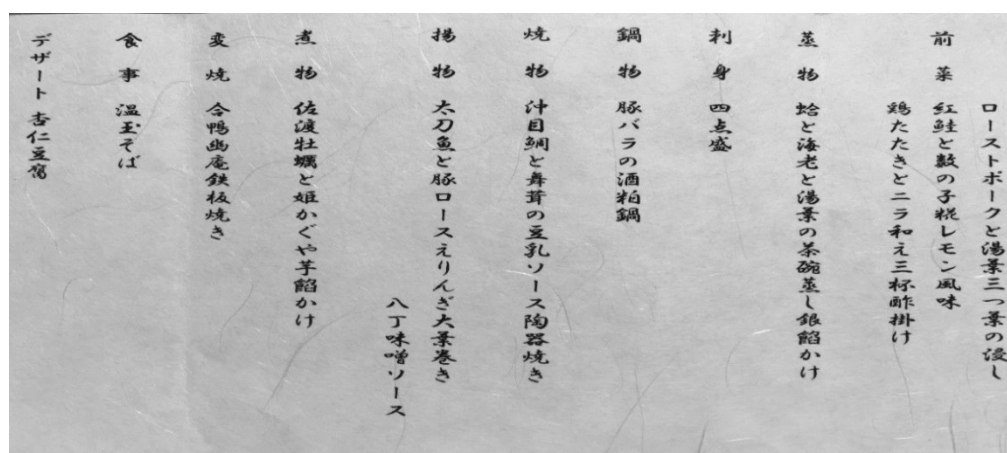 ローストポークと湯葉三つ葉の浸し
前菜 紅鮭と数の子糀レモン風味
鶏たたきとニラ和え三杯酢掛け
蒸物 蛤と海老と湯葉の茶碗蒸し銀餡かけ
刺身 四点盛
鍋物 豚バラの酒粕鍋
焼物 沖目鯛と舞茸の豆乳ソース陶器焼き
揚物 太刀魚と豚ロースえりんぎ大葉巻き
八丁味噌ソース
煮物 佐渡牡蠣と姫かぐや芋餡かけ
変焼 合鴨幽庵鉄板焼き
食事 温玉そば
デザート 杏仁豆腐